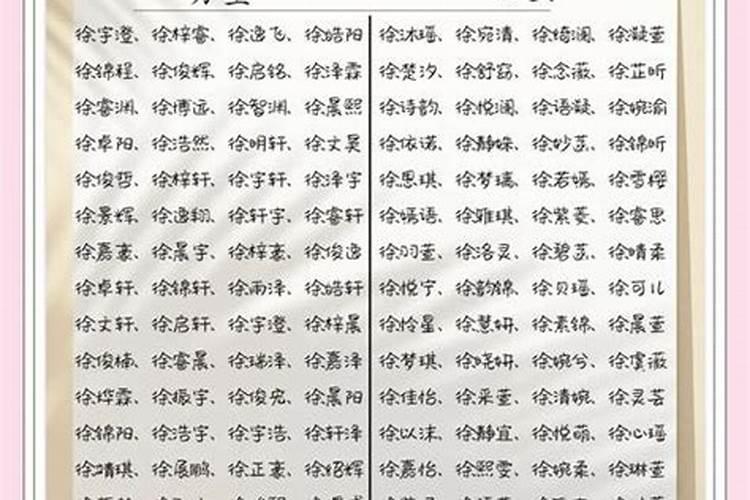 徐宇澄、徐梓睿、徐逸飞、徐皓阳
徐锦程、徐俊辉、徐启铭、徐泽霖
徐睿渊、徐博远、徐智渊、徐晨熙
徐卓阳、徐浩然、徐明轩、徐文昊
徐俊哲、徐梓轩、徐宇轩、徐泽宇
徐景辉、徐逸翔、徐轩宇、徐睿轩
徐嘉豪、徐晨宇、徐梓豪、徐俊逸
徐卓轩、徐锦轩、徐雨泽、徐皓轩
徐文轩、徐启轩、徐宇澄、徐梓晨
徐俊楠、徐睿晨、徐瑞泽、徐嘉泽
徐烨霖、徐振宇、徐俊宛、徐晨阳
徐锦阳、徐浩宇、徐宇浩、徐轩泽
徐靖琪、徐展鹏、徐正豪、徐绍辉
徐沐瑶、徐宛清、徐绮澜、徐凝萱
徐楚汐、徐舒窈、徐念薇、徐芷昕
徐诗韵、徐悦澜、徐语凝、徐婉渝
徐依诺、徐静姝、徐妙菡、徐锦昕
徐思琪、徐梦璃、徐若嫣、徐雪樱
徐嫣语、徐雅琪、徐紫菱、徐睿思
徐羽萱、徐洛灵、徐碧菡、徐晴柔
徐悦宁、徐韵锦、徐贝瑶、徐可儿
徐怜星、徐慧妍、徐素锦、徐晨萱
徐梦琪、徐晓妍、徐婉兮、徐虞薇
徐佳怡、徐采萱、徐清婉、徐灵芸
徐以沫、徐静宜、徐悦萌、徐心瑶
徐嘉怡、徐熙雯、徐婉柔、徐琳萱